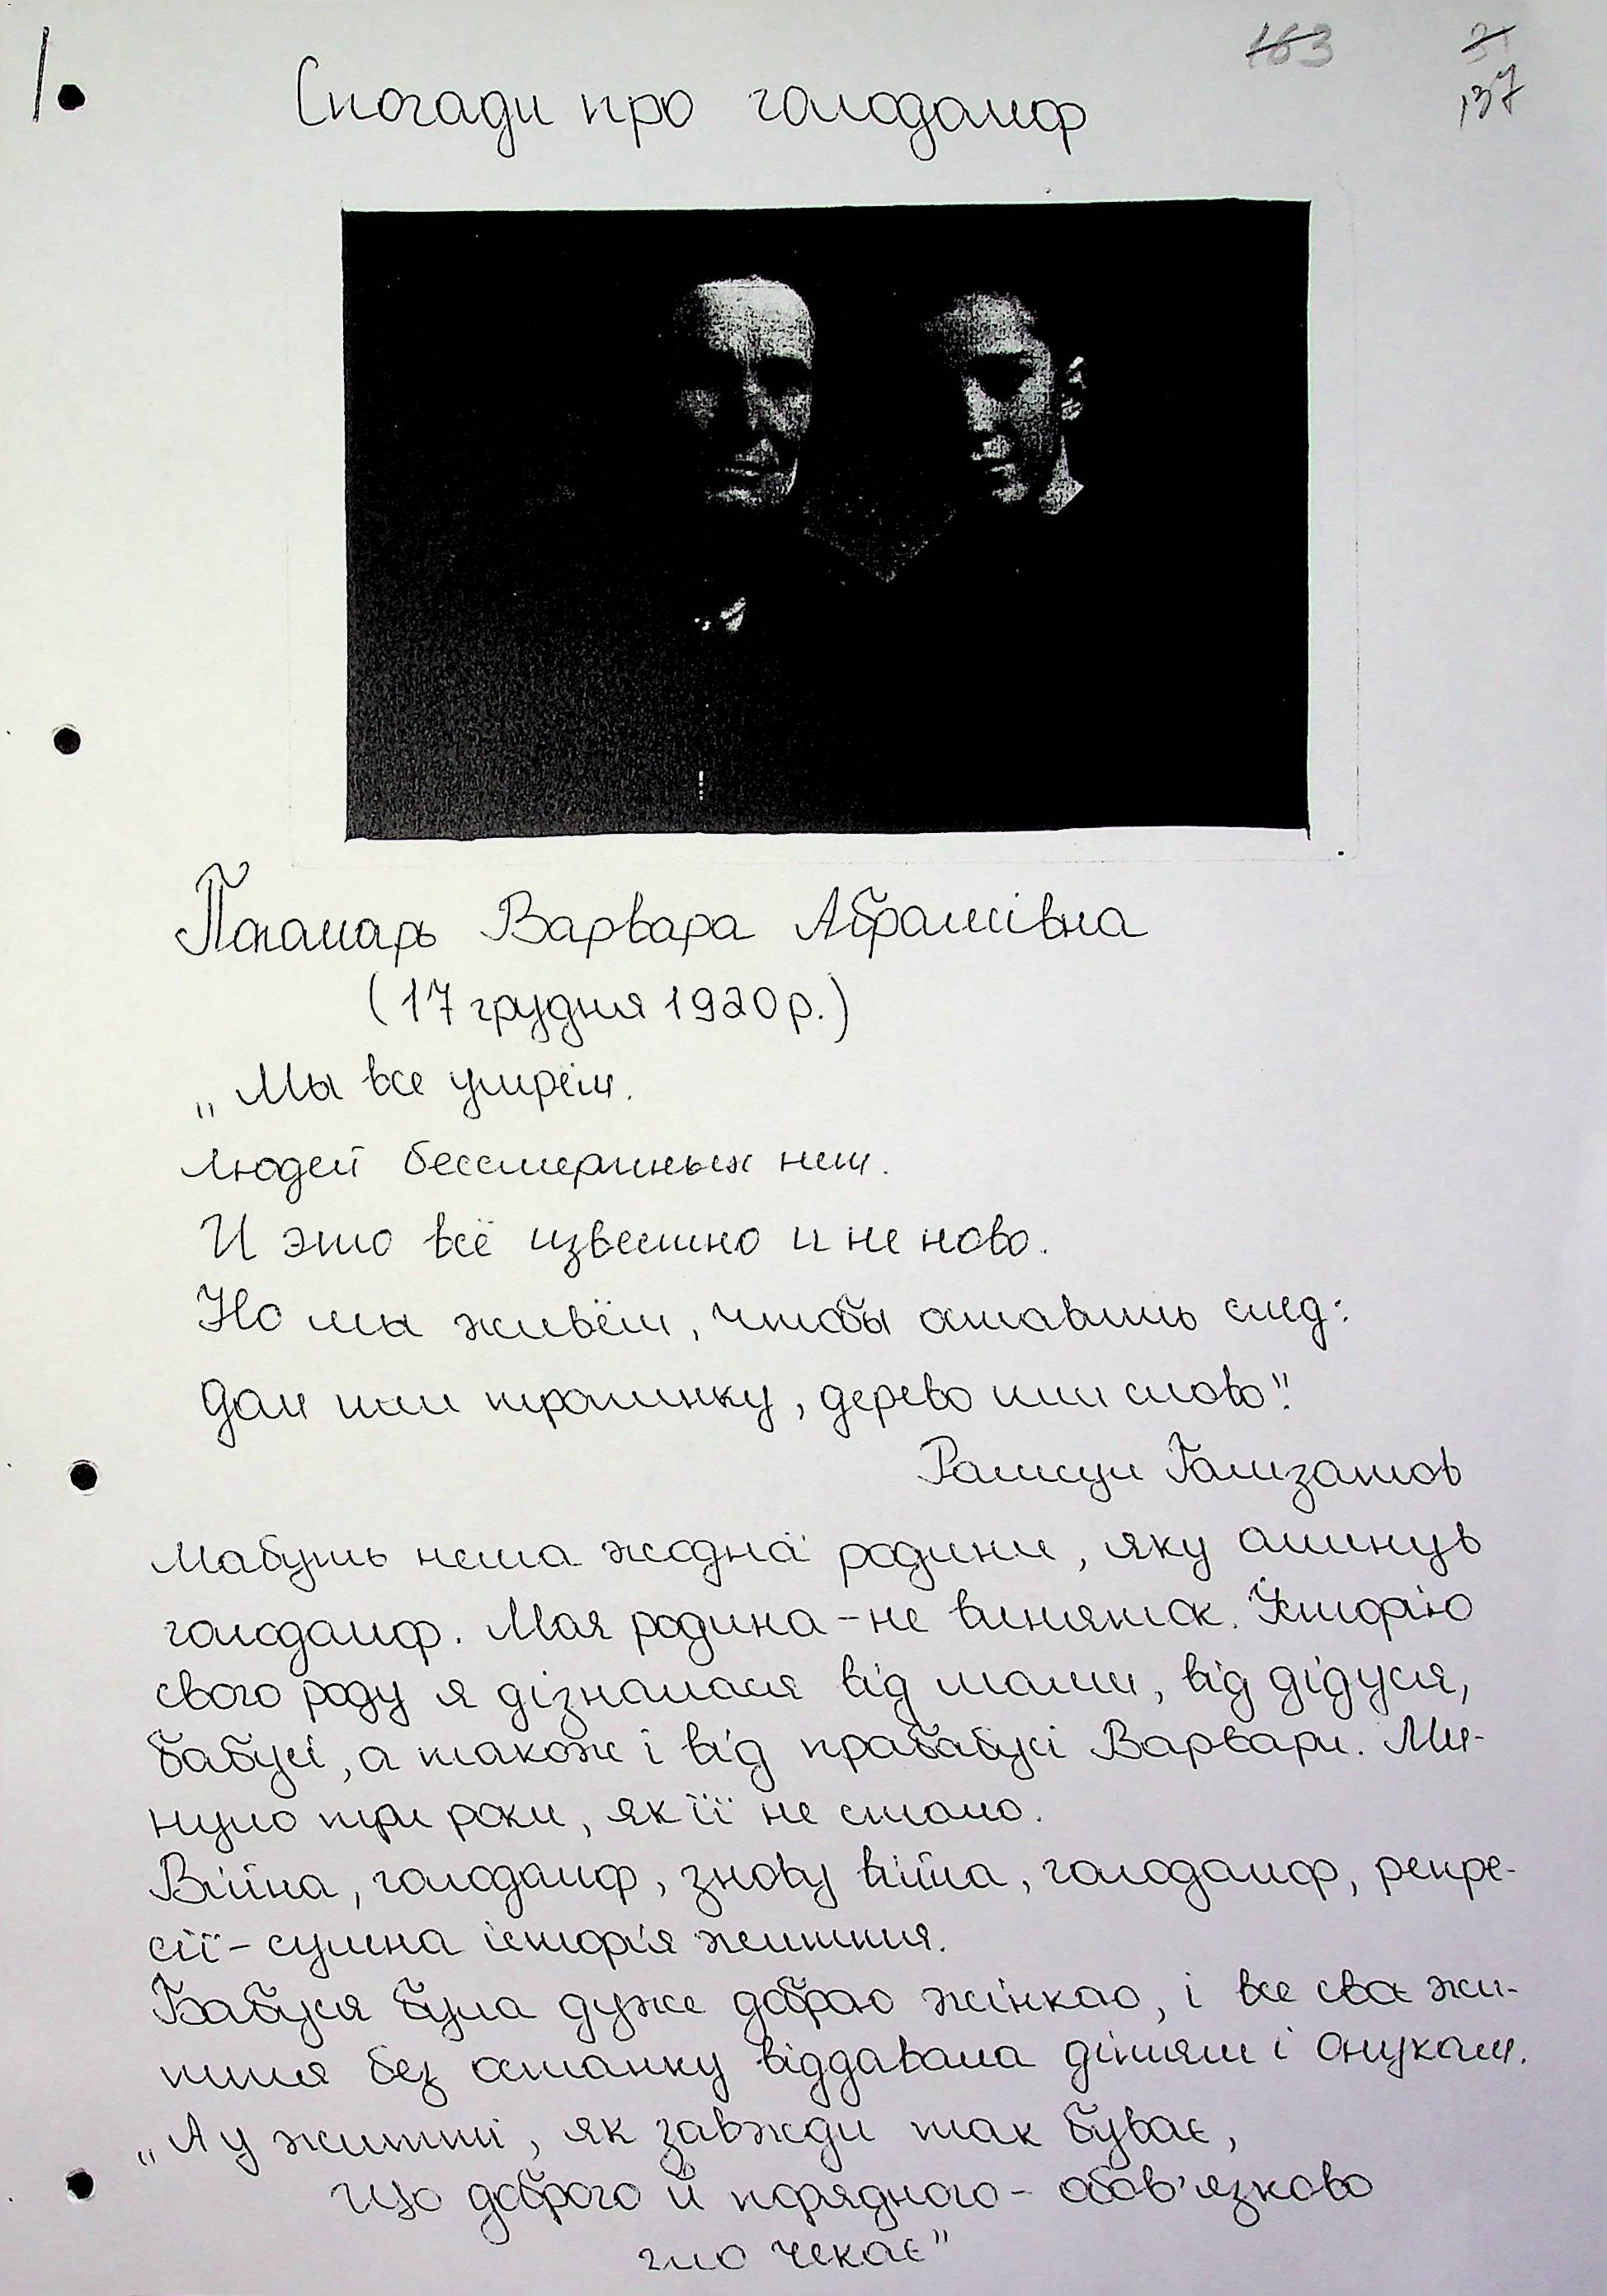 1.
163 31
137
Спогади про голодомор
Паламарь Варвара Абрамівна
(17 грудня 1920 р.)
„Мы все умрём.
Людей бессмертных нет.
И это всё известно и не ново.
Но мы живём, чтобы оставить след:
Дом или тропинку, дерево или слово".
Рамсул Гамзатов
Мабуть нема жодна родини, яку оминув
голодомор. Моя родина - не виняток. Історію
свого роду я дізналася від мами, від дідуся,
бабусі, а також і від прабабусі Варвари. Ми-
нуло три роки, як її не стало.
Війна, голодомор, знову війна, голодомор, репре-
сії - сумна історія життя.
Бабуся була дуже доброю жінкою, і все своє жи-
ття без останку віддавала дітям і онукам.
„А у житті, як завжди так буває,
Що доброго й порядного - обов'язково
зло чекає"